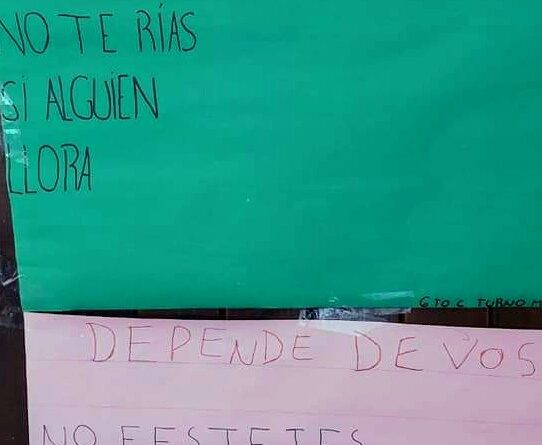 NO TE RÍAS
SI ALGUIEN
LLORA
6 TO C TURNO M
DEPENDE DE VOS
NO FESTEJES